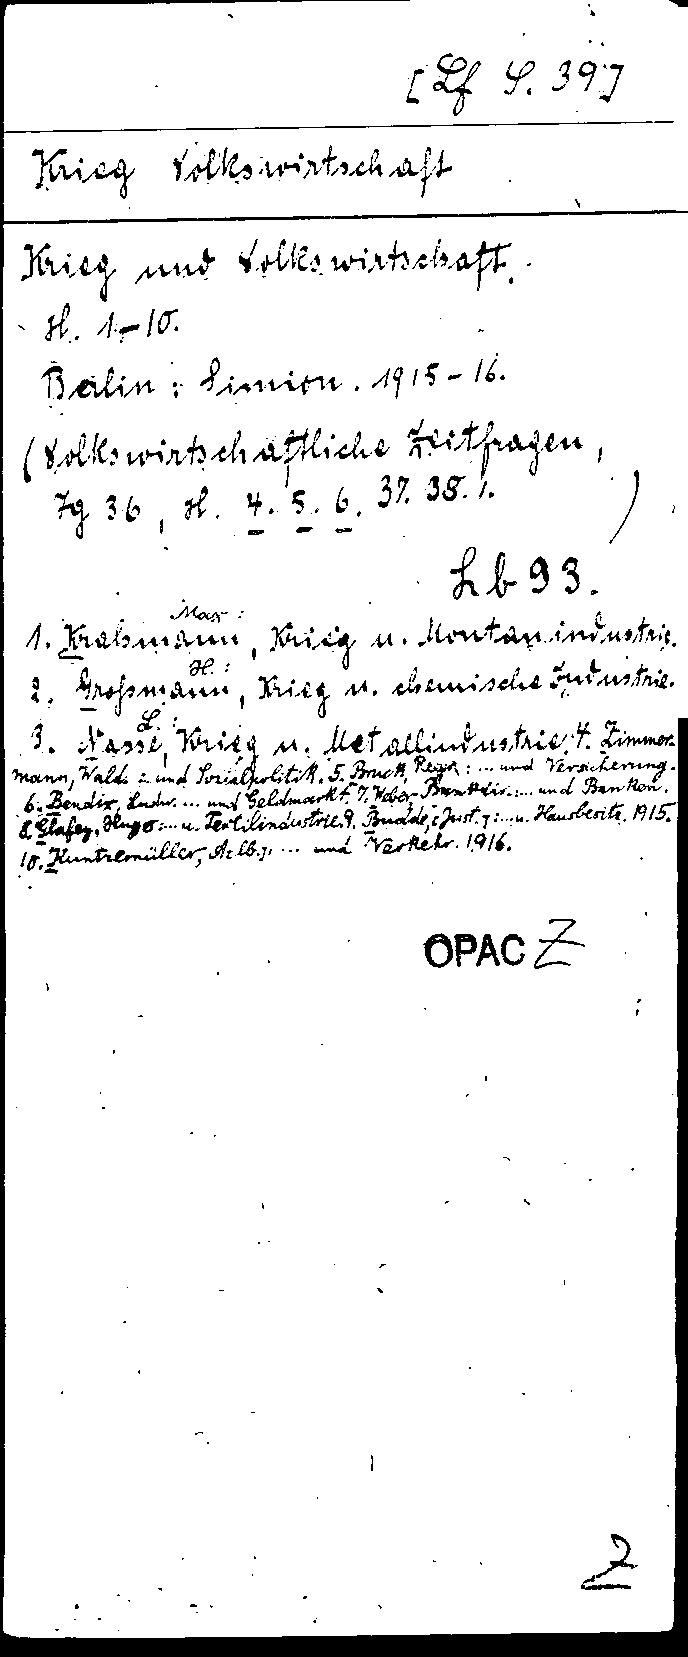 [Lf S. 39]
Krieg Volkswirtschaft
Krieg und Volkswirtschaft.
H. 1-10.
Berlin: Simion. 1915-16.
(Volkswirtschaftliche Zeitfragen,
Jg 36, H. 4. 5. 6. 37. 38. 1. )
Lb 93.
1. Krahmann, Max: Krieg u. Montanindustrie.
2. Grossmann, H.: Krieg u. chemische Industrie.
3. Nasse, L.: Krieg u. Metallindustrie. 4. Zimmer-
mann, Wald. ... und Sozialpolitik. 5. : ... und Versicherung.
6. Bendix, Ludw. ... und Geldmarkt. 7. Weber, Bankdir.: ... und Banken.
8. Glafey, Hugo: ... u. Textilindustrie. 9. Budde, Just.: ... u. Hausbesitz. 1915.
10. Kuntzemüller, Alb.: ... und Verkehr. 1916.
OPAC Z
Z